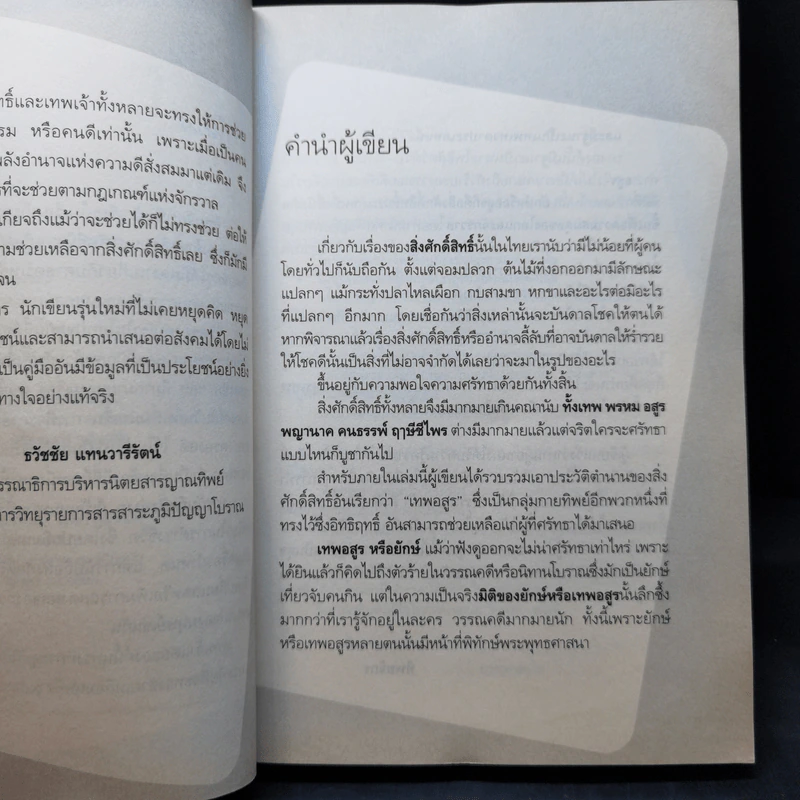 ทธิ์และเทพเจ้าทั้งหลายจะทรงให้การช่วย
รรม หรือคนดีเท่านั้น เพราะเมื่อเป็นคน
พลังอำนาจแห่งความดีสั่งสมมาแต่เดิม จึง
รที่จะช่วยตามกฎเกณฑ์แห่งจักรวาล
เกียจถึงแม้ว่าจะช่วยได้ก็ไม่ทรงช่วย ต่อให้
ามช่วยเหลือจากสิ่งศักดิ์สิทธิ์เลย ซึ่งก็มักมี
จน
ร นักเขียนรุ่นใหม่ที่ไม่เคยหยุดคิด หยุด
ชน์และสามารถนำเสนอต่อสังคมได้โดยไม่
เป็นคู่มืออันมีข้อมูลที่เป็นประโยชน์อย่างยิ่ง
ทางใจอย่างแท้จริง
ธวัชชัย แทนวารีรัตน์
รรณาธิการบริหารนิตยสารญาณทิพย์
การวิทยุรายการสารสาระภูมิปัญญาโบราณ
คำนำผู้เขียน
เกี่ยวกับเรื่องของสิ่งศักดิ์สิทธิ์นั้นในไทยเรานับว่ามีไม่น้อยที่ผู้คน
โดยทั่วไปก็นับถือกัน ตั้งแต่จอมปลวก ต้นไม้ที่งอกออกมามีลักษณะ
แปลกๆ แม้กระทั่งปลาไหลเผือก กบสามขา หกขาและอะไรต่อมิอะไร
ที่แปลกๆ อีกมาก โดยเชื่อกันว่าสิ่งเหล่านั้นจะบันดาลโชคให้ตนได้
หากพิจารณาแล้วเรื่องสิ่งศักดิ์สิทธิ์หรืออำนาจลี้ลับที่อาจบันดาลให้ร่ำรวย
ให้โชคดีนั้นเป็นสิ่งที่ไม่อาจจำกัดได้เลยว่าจะมาในรูปของอะไร
ขึ้นอยู่กับความพอใจความศรัทธาด้วยกันทั้งสิ้น
สิ่งศักดิ์สิทธิ์ทั้งหลายจึงมีมากมายเกินคณานับ ทั้งเทพ พรหม อสูร
พญานาค คนธรรพ์ ฤาษีชีไพร ต่างมีมากมายแล้วแต่จริตใครจะศรัทธา
แบบไหนก็บูชากันไป
สำหรับภายในเล่มนี้ผู้เขียนได้รวบรวมเอาประวัติตำนานของสิ่ง
ศักดิ์สิทธิ์อันเรียกว่า “เทพอสูร” ซึ่งเป็นกลุ่มกายทิพย์อีกพวกหนึ่งที่
ทรงไว้ซึ่งอิทธิฤทธิ์ อันสามารถช่วยเหลือแก่ผู้ที่ศรัทธาได้มาเสนอ
เทพอสูร หรือยักษ์ แม้ว่าฟังดูออกจะไม่น่าศรัทธาเท่าไหร่ เพราะ
ได้ยินแล้วก็คิดไปถึงตัวร้ายในวรรณคดีหรือนิทานโบราณซึ่งมักเป็นยักษ์
เที่ยวจับคนกิน แต่ในความเป็นจริงมิติของยักษ์หรือเทพอสูรนั้นลึกซึ้ง
มากกว่าที่เรารู้จักอยู่ในละคร วรรณคดีมากมายนัก ทั้งนี้เพราะยักษ์
หรือเทพอสูรหลายตนนั้นมีหน้าที่พิทักษ์พระพุทธศาสนา